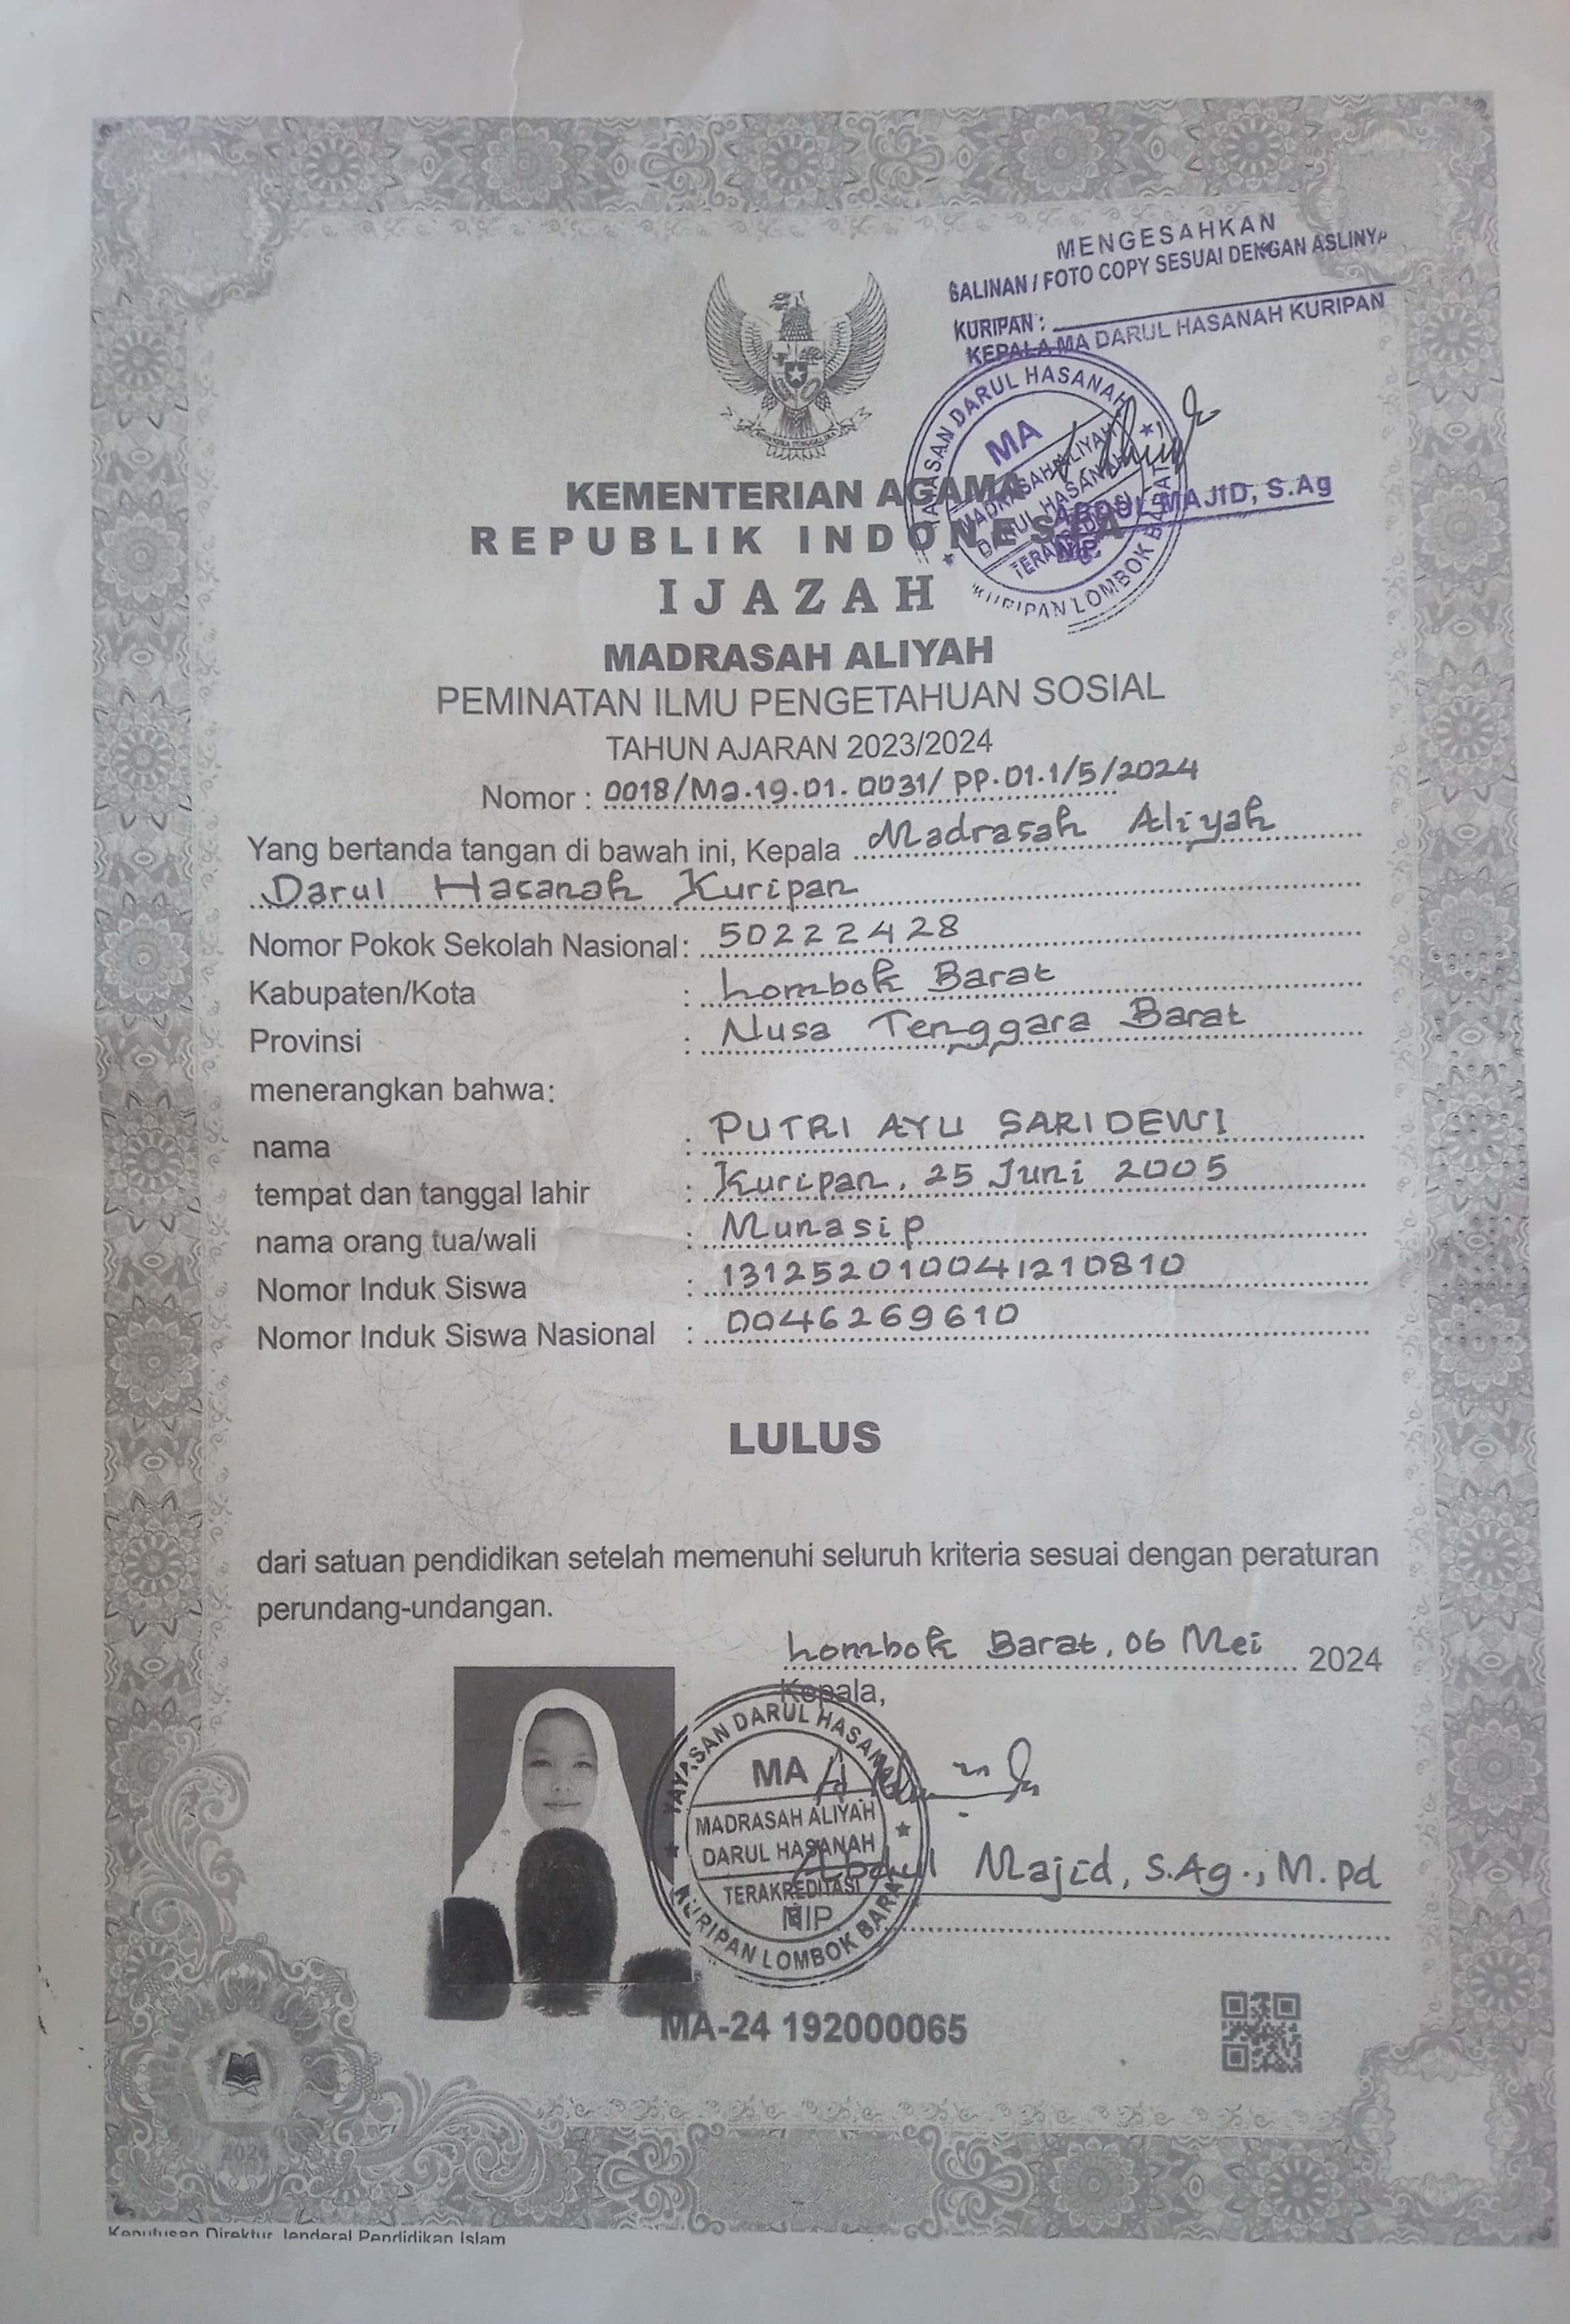 MENGESAHKAN
SALINAN / FOTO COPY SESUAI DENGAN ASLINYA
KURIPAN :
KEPALA MA DARUL HASANAH KURIPAN
YAYASAN DARUL HASANAH
MA
MADRASAH ALIYAH
DARUL HASANAH
KURIPAN LOMBOK BARAT
ABDUL MAJID, S.Ag
NIP
KEMENTERIAN AGAMA
REPUBLIK INDONESIA
IJAZAH
MADRASAH ALIYAH
PEMINATAN ILMU PENGETAHUAN SOSIAL
TAHUN AJARAN 2023/2024
Nomor : 0018/Ma.19.01.0031/PP.01.1/5/2024
Yang bertanda tangan di bawah ini, Kepala Madrasah Aliyah
Darul Hasanah Kuripan
Nomor Pokok Sekolah Nasional : 50222428
Kabupaten/Kota : Lombok Barat
Provinsi : Nusa Tenggara Barat
menerangkan bahwa:
nama : PUTRI AYU SARIDEWI
tempat dan tanggal lahir : Kuripan, 25 Juni 2005
nama orang tua/wali : Munasip
Nomor Induk Siswa : 131252010041210810
Nomor Induk Siswa Nasional : 0046269610
LULUS
dari satuan pendidikan setelah memenuhi seluruh kriteria sesuai dengan peraturan
perundang-undangan.
Lombok Barat, 06 Mei 2024
Kepala,
YAYASAN DARUL HASANAH
MA
MADRASAH ALIYAH
DARUL HASANAH
TERAKREDITASI
KURIPAN LOMBOK BARAT
Abdul Majid, S.Ag., M.Pd
NIP.
MA-24 192000065
2024
Keputusan Direktur Jenderal Pendidikan Islam